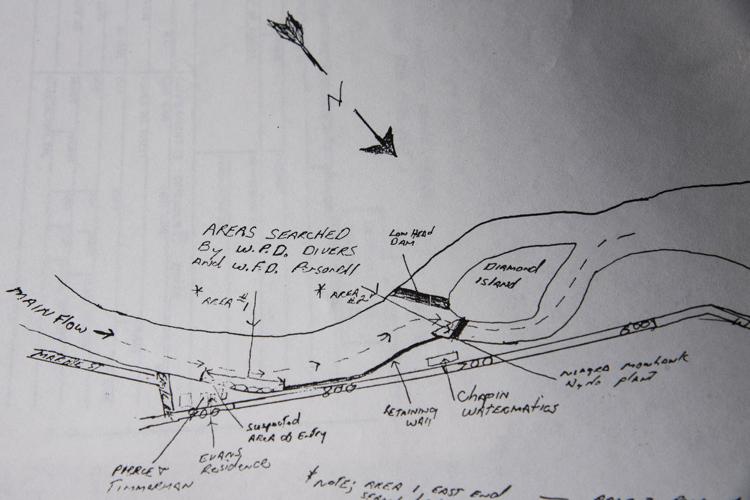 N
AREAS SEARCHED
By W.P.D. DIVERS
And W.F.D. Personell
* AREA #1
* AREA #2
LOW HEAD
DAM
DIAMOND
ISLAND
MAIN FLOW
800
700
800
600
SUSPECTED
AREA OF ENTRY
EVANS
RESIDENCE
PIERCE &
TIMMERMAN
RETAINING
WALL
CHAPIN
WATERMATICS
NIAGRA MOWHAWK
HYDRO PLANT
* NOTE; AREA 1, EAST END